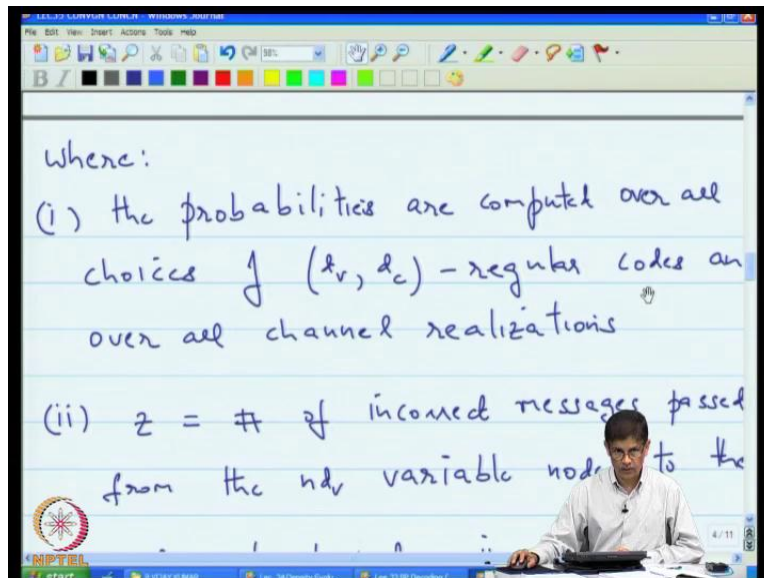 LEC.35 CONVGN CONCN - Windows Journal
File Edit View Insert Actions Tools Help
98%
B I
where:
(i) the probabilities are computed over all
choices of (dv, dc) - regular codes an
over all channel realizations
(ii) z = # of incorrect messages passed
from the ndv variable node to the
4/11
NPTEL
start